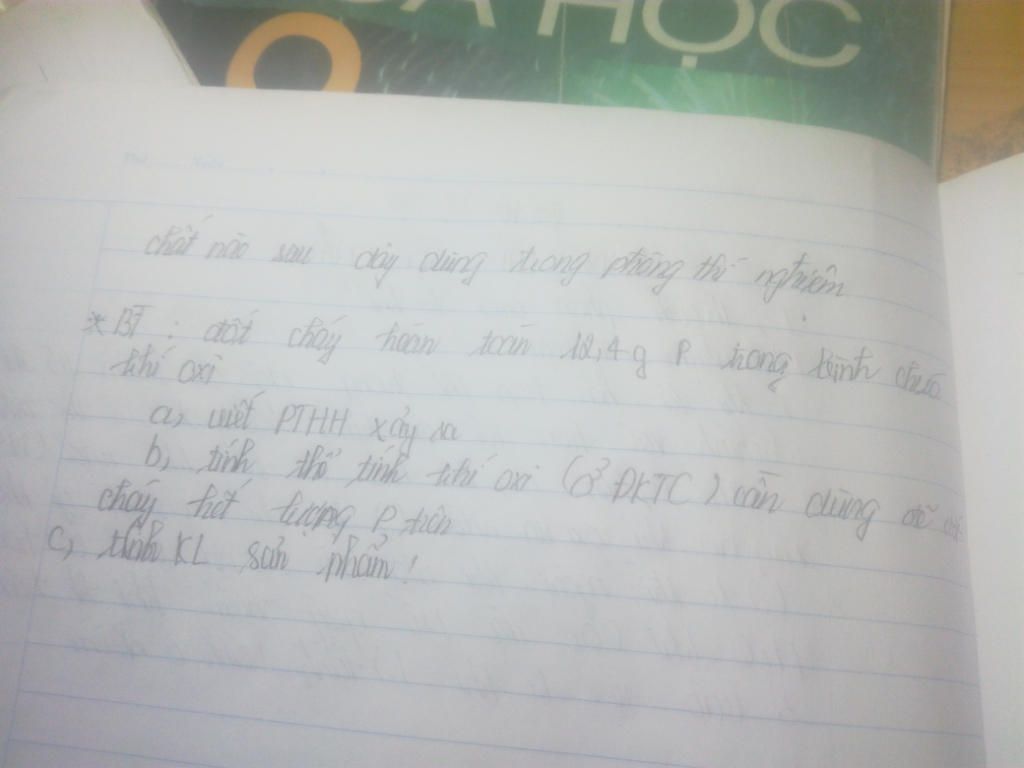 HỌC
chất nào sau đây dùng trong phòng thí nghiệm
* BT : đốt cháy hoàn toàn 12,4 g P trong bình chứa
khí oxi
a, viết PTHH xảy ra
b, tính thể tính khí oxi (ở ĐKTC) cần dùng để đốt
cháy hết lượng P trên
c, tính KL sản phẩm !